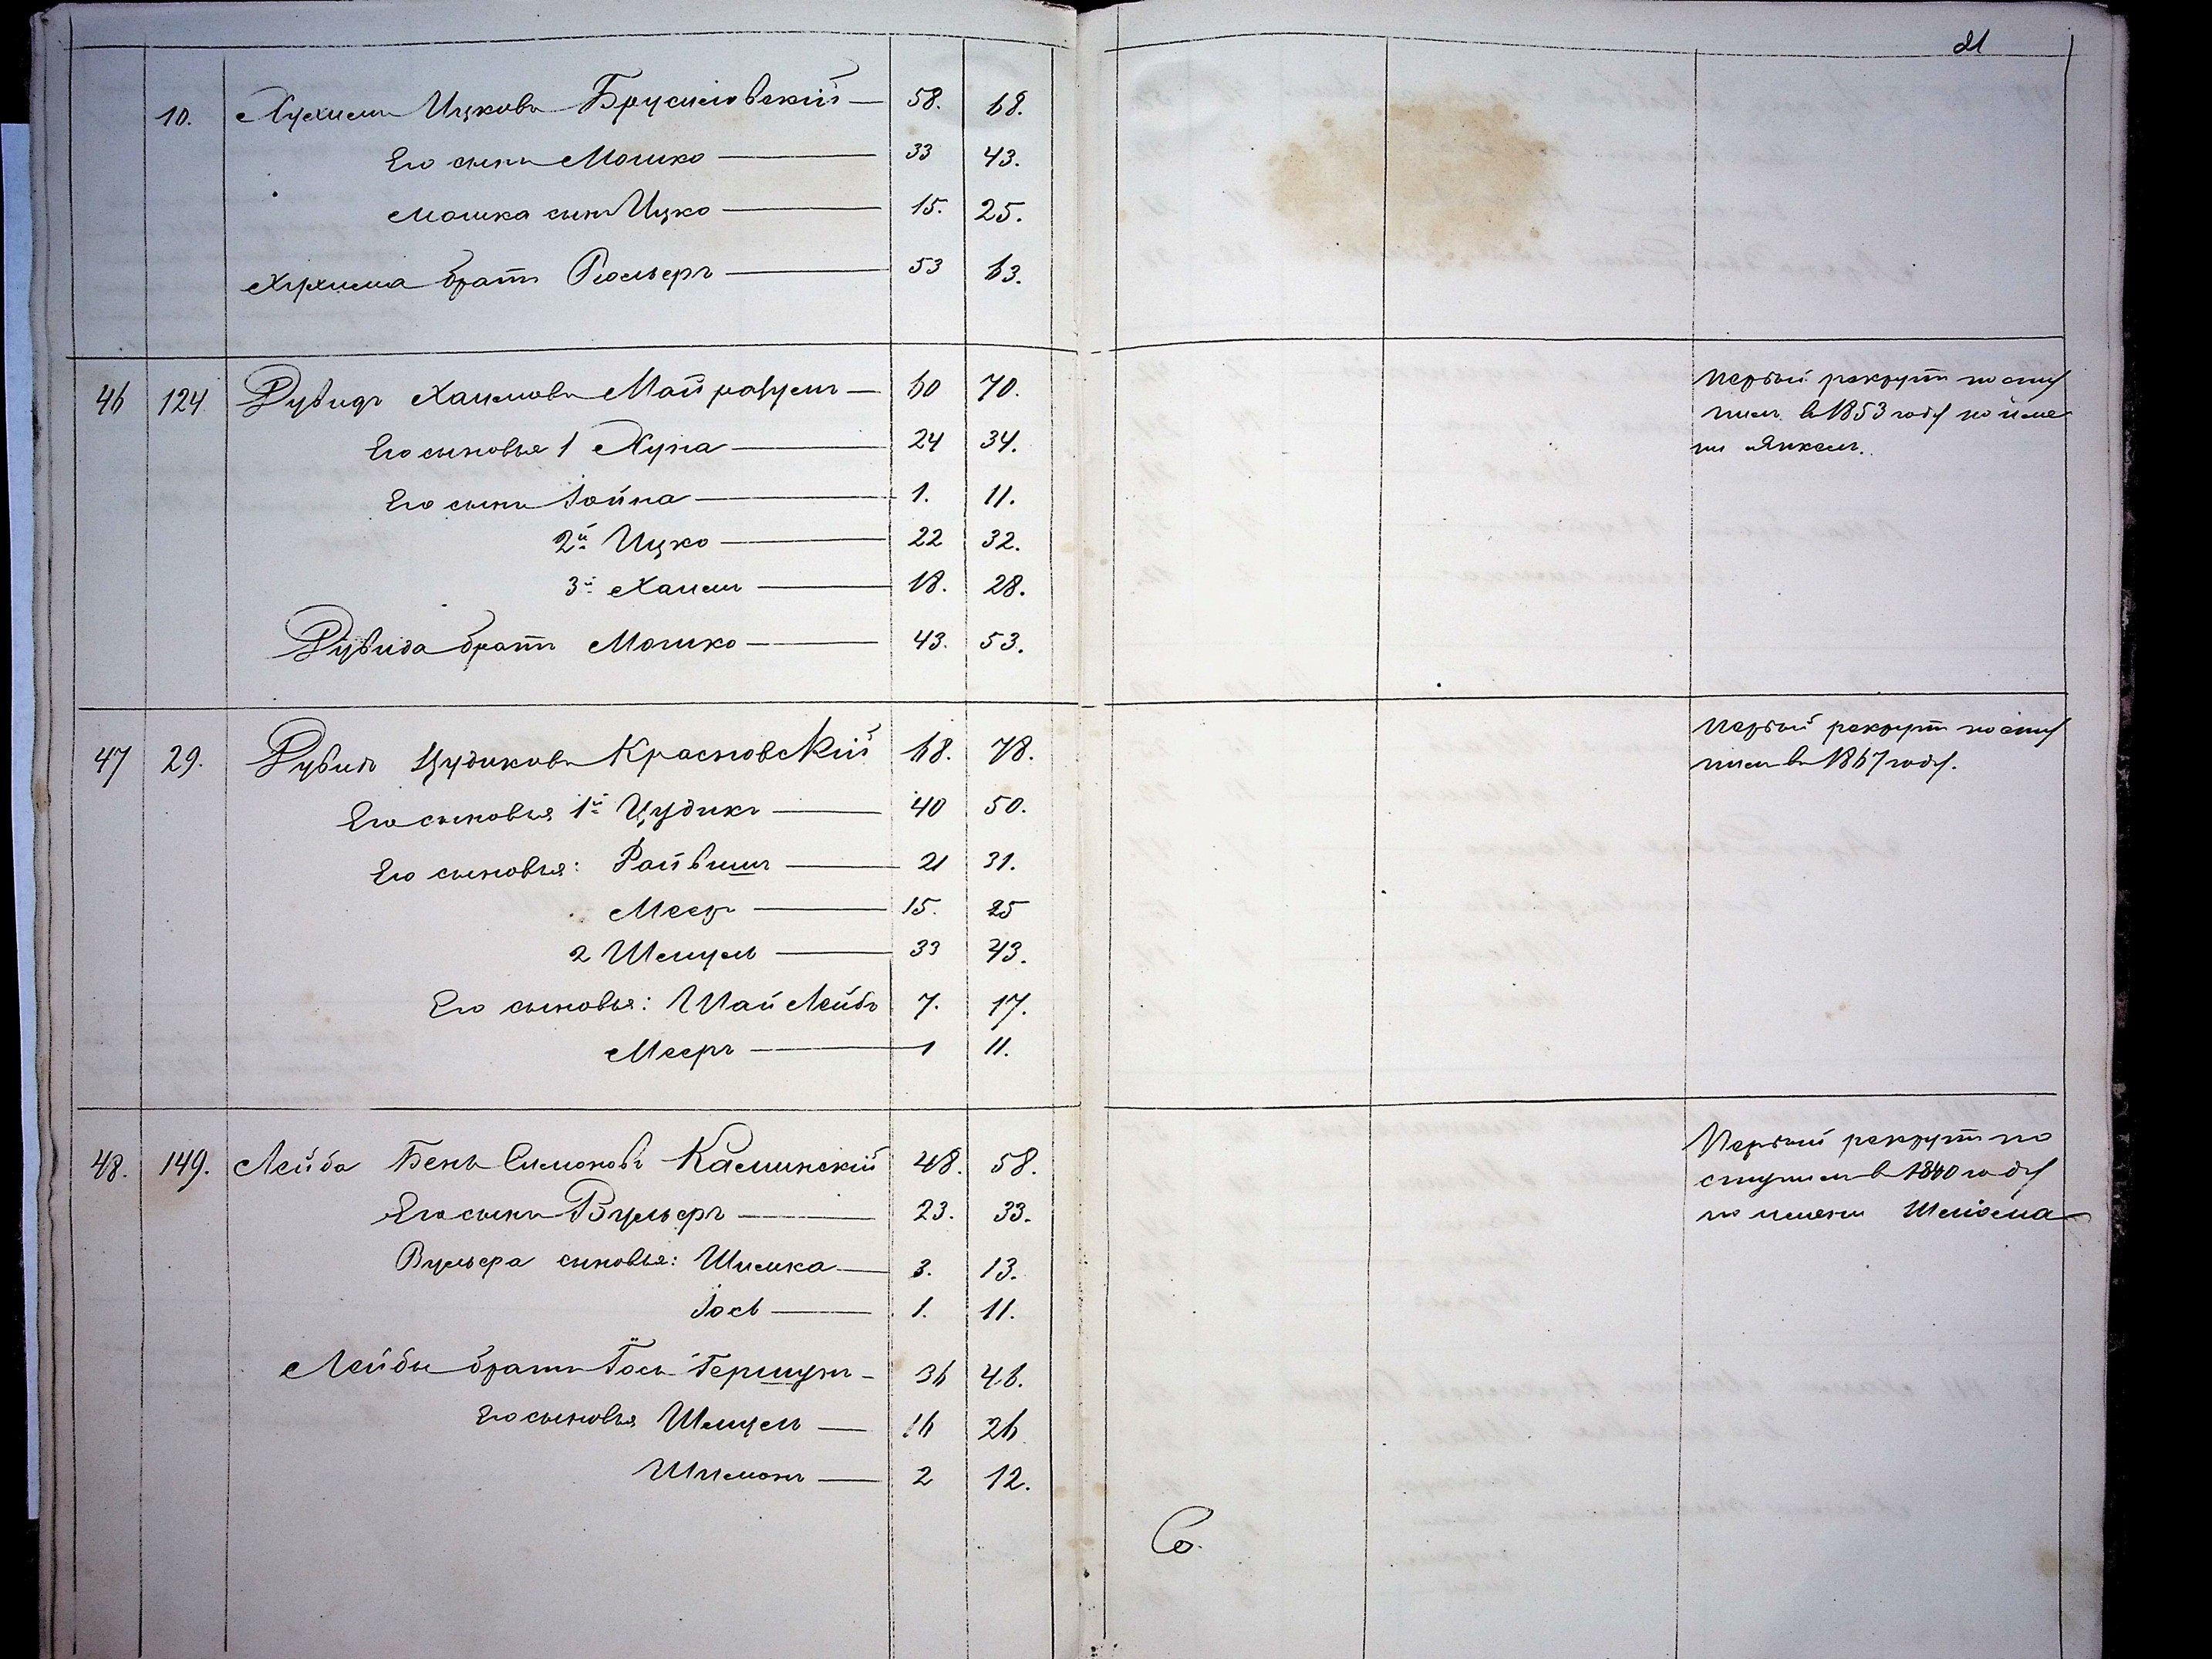 21
10. Нухимъ Ицковъ Брусиловскій — 58. 68.
Его сынъ Мошко — 33 43.
Мошка сынъ Ицко — 15. 25.
Нухима братъ — 53 63.
46 124 Рувидъ Хаимовъ — 60 70.
Его сыновья 1 Нуха — 24 34.
Его сынъ Іойна — 1. 11.
2й Ицко — 22 32.
3й Хаимъ — 18. 28.
Рувида братъ Мошко — 43. 53.
Первый рекрутъ посту
пилъ въ 1853 году по име
ни Янкель.
47 29. Рувидъ Цудиковъ Красновскій 68. 78.
Его сыновья 1й Цудикъ — 40 50.
Его сыновья: Файвишъ — 21 31.
Меер — 15. 25
2 Шмуль — 33 43.
Его сыновья: Шай Лейбъ 7. 17.
Мееръ — 1 11.
Первый рекрутъ посту
пилъ въ 1867 году.
48. 149. Лейба Бень Симоновъ Каминскій 48. 58.
Его сынъ Вульфъ — 23. 33.
Вульфа сыновья: Шимка — 3. 13.
Іось — 1. 11.
Лейбы братъ Іось Гершунъ — 36 46.
Его сыновья Шмуль — 16 26
Шимонъ — 2 12.
Первый рекрутъ по
ступилъ въ 1840 году
по имени Шліома
Со.